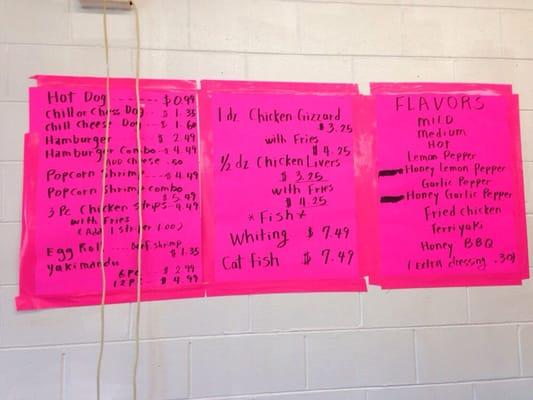 Hot Dog ---- $0.99
Chili or Chess Dog $1.35
Chili Cheese Dog $1.60
Hamburger $2.49
Hamburger Combo $4.49
ADD Cheese .50
Popcorn Shrimp $4.49
Popcorn Shrimp combo
$5.99
3 Pc Chicken Strips 4.49
with Fries
(Add 1 strip 1.00)
Egg Roll Beef, shrimp
$1.35
Yakimandu
6 PC $2.99
12 PC $4.99
1 dz Chicken Gizzard
$3.25
with Fries
$4.25
1/2 dz Chicken Livers
$3.25
with Fries
$4.25
*Fish*
Whiting $7.49
Cat Fish $7.49
FLAVORS
MILD
Medium
HOT
Lemon Pepper
Honey Lemon Pepper
Garlic Pepper
Honey Garlic Pepper
Fried chicken
Terriyaki
Honey BBQ
(Extra dressing .30)